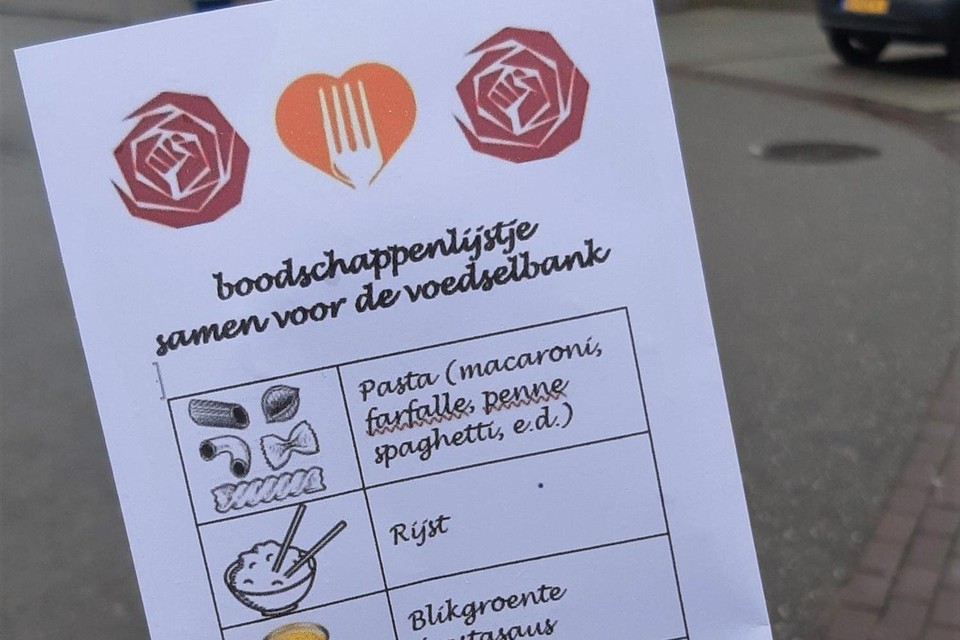 boodschappenlijstje
samen voor de voedselbank
Pasta (macaroni,
farfalle, penne
spaghetti, e.d.)
Rijst
Blikgroente